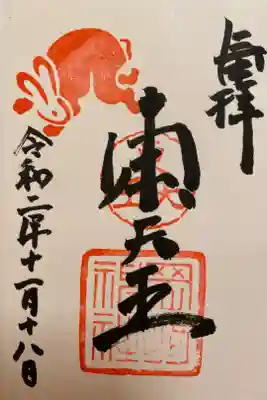 奉拝
東天王
令和二年十一月十八日